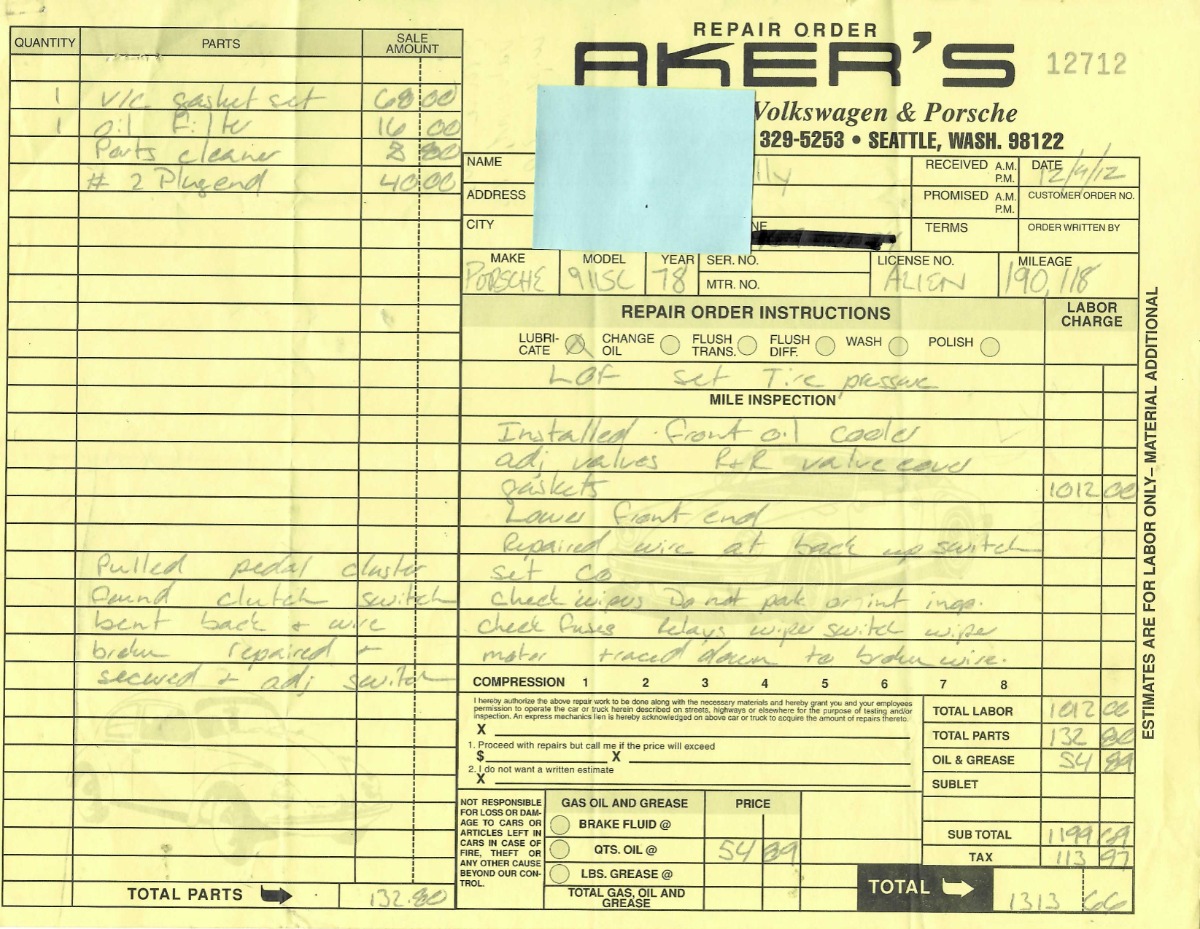 REPAIR ORDER
AKER'S
12712
Volkswagen & Porsche
329-5253 • SEATTLE, WASH. 98122
QUANTITY PARTS SALE AMOUNT
1 V/C gasket set 68 00
1 oil Filter 16 00
Parts cleaner 8 80
# 2 Plug end 40 00
Pulled pedal cluster
found clutch switch
bent back & wire
broken repaired +
secured + adj switch
TOTAL PARTS 132.80
NAME lly
RECEIVED A.M. P.M.
DATE 12/4/12
ADDRESS
PROMISED A.M. P.M.
CUSTOMER ORDER NO.
CITY
NE
TERMS
ORDER WRITTEN BY
MAKE PORSCHE
MODEL 911SC
YEAR 78
SER. NO.
MTR. NO.
LICENSE NO. ALIEN
MILEAGE 190,118
REPAIR ORDER INSTRUCTIONS
LABOR CHARGE
LUBRI-CATE CHANGE OIL FLUSH TRANS. FLUSH DIFF. WASH POLISH
LOF set Tire pressure
MILE INSPECTION
Installed front oil cooler
adj valves R+R valve cover
gaskets 1012 00
Lower front end
Repaired wire at back up switch
set Co
check wipers Do not park or int inop.
check fuses relays wiper switch wiper
motor traced down to broken wire.
COMPRESSION 1 2 3 4 5 6 7 8
I hereby authorize the above repair work to be done along with the necessary materials and hereby grant you and your employees
permission to operate the car or truck herein described on streets, highways or elsewhere for the purpose of testing and/or
inspection. An express mechanics lien is hereby acknowledged on above car or truck to acquire the amount of repairs thereto.
X
1. Proceed with repairs but call me if the price will exceed
$ X
2. I do not want a written estimate
X
TOTAL LABOR 1012 00
TOTAL PARTS 132 80
OIL & GREASE 54 89
SUBLET
SUB TOTAL 1199 69
TAX 113 97
TOTAL 1313 66
NOT RESPONSIBLE
FOR LOSS OR DAM-
AGE TO CARS OR
ARTICLES LEFT IN
CARS IN CASE OF
FIRE, THEFT OR
ANY OTHER CAUSE
BEYOND OUR CON-
TROL.
GAS OIL AND GREASE PRICE
BRAKE FLUID @
QTS. OIL @ 54 89
LBS. GREASE @
TOTAL GAS, OIL AND GREASE
ESTIMATES ARE FOR LABOR ONLY– MATERIAL ADDITIONAL